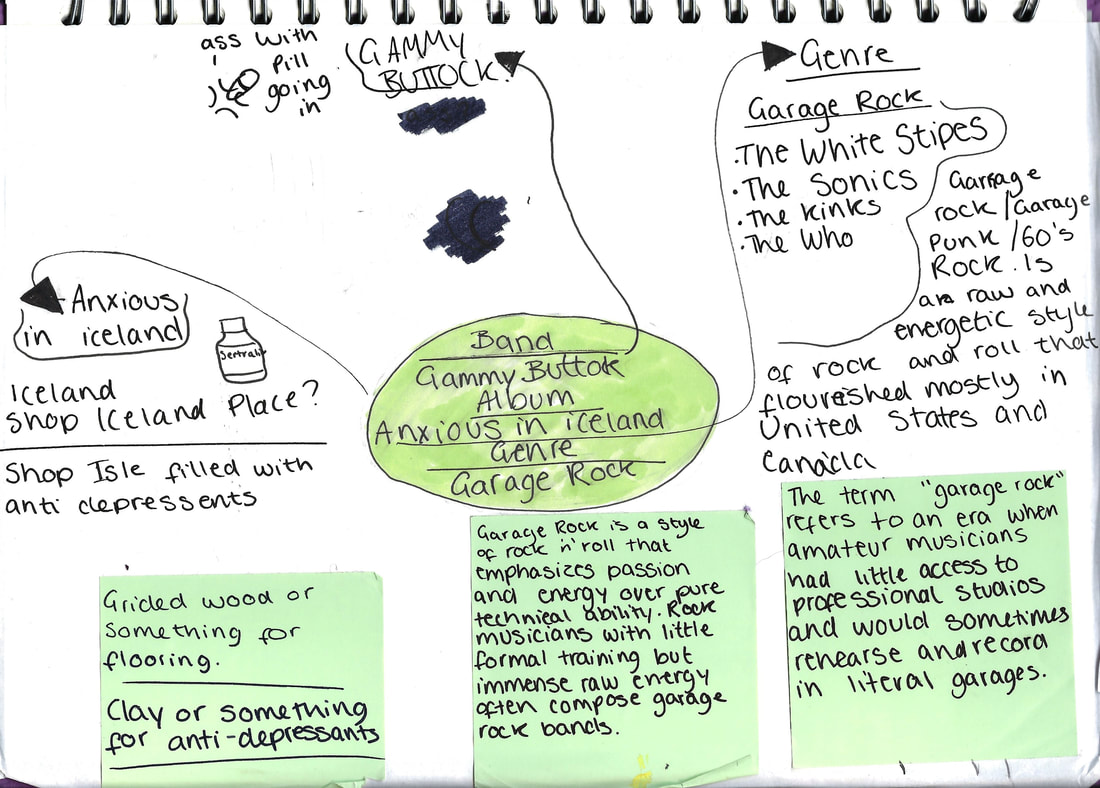 ass with
Pill
going
in
GAMMY
BUTTOCK.
Genre
Garage Rock
.The White Stipes
.The Sonics
.The Kinks
.The Who
Garrage
rock/Garage
Punk/60's
Rock. Is
an raw and
energetic style
of rock and roll that
flourished mostly in
United States and
Canada
Anxious
in iceland
Sertrali
Iceland
Shop Iceland Place?
Shop Isle filled with
anti depressents
Band
Gammy Buttok
Album
Anxious in iceland
Genre
Garage Rock
Grided wood or
something for
flooring.
Clay or something
for anti-depressants
Garage Rock is a style
of rock n'roll that
emphasizes passion
and energy over pure
technical ability. Rock
musicians with little
formal training but
immense raw energy
often compose garage
rock bands.
The term "garage rock"
refers to an era when
amateur musicians
had little access to
professional studios
and would sometimes
rehearse and record
in literal garages.